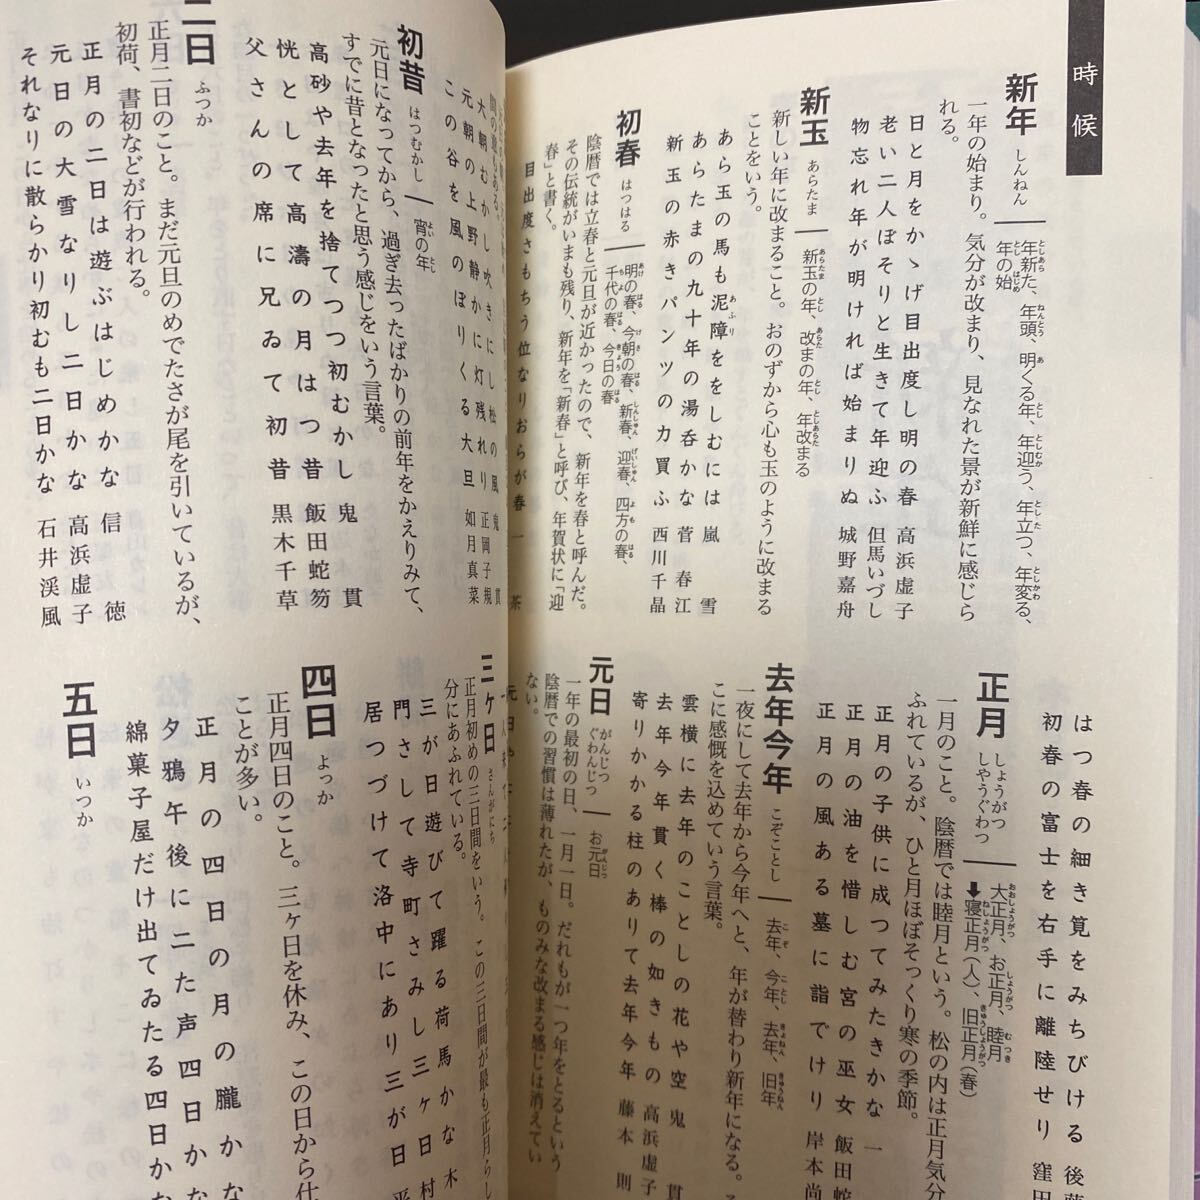 時候
新年 しんねん
年新た、年頭、明くる年、年迎う、年立つ、年変る、
年の始
一年の始まり。気分が改まり、見なれた景が新鮮に感じら
れる。
日と月をかゝげ目出度し明の春 高浜虚子
老い二人ぼそりと生きて年迎ふ 但馬いづし
物忘れ年が明ければ始まりぬ 城野嘉舟
新玉 あらたま
新玉の年、改まの年、年改まる
新しい年に改まること。おのずから心も玉のように改まる
ことをいう。
あら玉の馬も泥障ををしむには 嵐雪
あらたまの九十年の湯呑かな 菅春江
新玉の赤きパンツの力買ふ 西川千晶
初春 はつはる
明の春、今朝の春、新春、迎春、四方の春、
千代の春、今日の春
陰暦では立春と元旦が近かったので、新年を春と呼んだ。
その伝統がいまも残り、新年を「新春」と呼び、年賀状に「迎
春」と書く。
目出度さもちう位なりおらが春 一茶
はつ春の細き筧をみちびける 後藤
初春の富士を右手に離陸せり 窪田
正月 しょうがつ しやうぐわつ
大正月、お正月、睦月
➡寝正月（人）、旧正月（春）
一月のこと。陰暦では睦月という。松の内は正月気分
ふれているが、ひと月ほぼそっくり寒の季節。
正月の子供に成つてみたきかな 一
正月の油を惜しむ宮の巫女 飯田蛇
正月の風ある墓に詣でけり 岸本尚
去年今年 こぞことし
去年、今年、去年、旧年
一夜にして去年から今年へと、年が替わり新年になる。
こに感慨を込めていう言葉。
雲横に去年のことしの花や空 鬼貫
去年今年貫く棒の如きもの 高浜虚子
寄りかかる柱のありて去年今年 藤本則
元日 がんじつ ぐわんじつ
お元日
一年の最初の日、一月一日。だれもが一つ年をとるという
陰暦での習慣は薄れたが、ものみな改まる感じは消えてい
ない。
元日や
大朝むかし吹きにし松の風 鬼貫
元朝の上野静かに灯残れり 正岡子規
この谷を風のぼりくる大旦 如月真菜
初昔 はつむかし
宵の年
元日になってから、過ぎ去ったばかりの前年をかえりみて、
すでに昔となったと思う感じをいう言葉。
高砂や去年を捨てつつ初むかし 鬼貫
恍として高濤の月はつ昔 飯田蛇笏
父さんの席に兄ゐて初昔 黒木千草
二日 ふつか
正月二日のこと。まだ元旦のめでたさが尾を引いているが、
初荷、書初などが行われる。
正月の二日は遊ぶはじめかな 信徳
元日の大雪なりし二日かな 高浜虚子
それなりに散らかり初むも二日かな 石井渓風
三ケ日 さんがにち
正月初めの三日間をいう。この三日間が最も正月らし
分にあふれている。
三が日遊びて躍る荷馬かな 木
門さして寺町さみし三ケ日 村
居つづけて洛中にあり三が日 平
四日 よっか
正月四日のこと。三ヶ日を休み、この日から仕
ことが多い。
正月の四日の月の朧かな
夕鴉午後に二た声四日かな
綿菓子屋だけ出てゐたる四日かな
五日 いつか